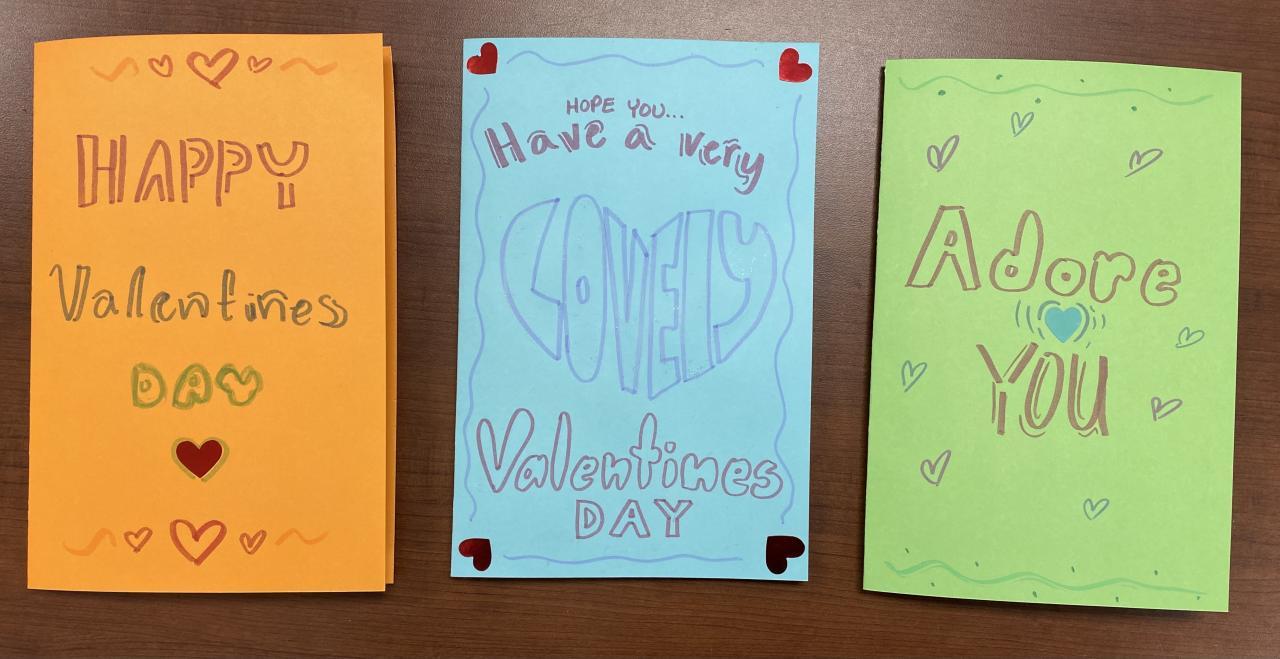 HAPPY
Valentines
DAY
HOPE YOU...
Have a very
LOVELY
Valentines
DAY
Adore
YOU